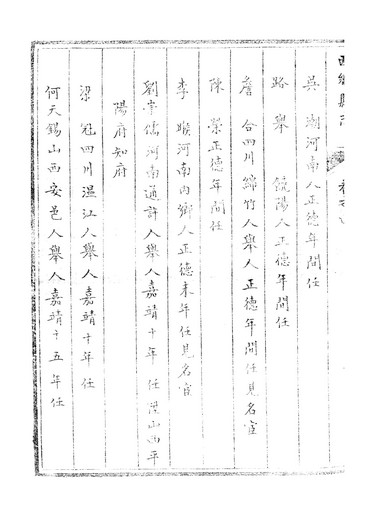 西鄉縣志
吳 潮河南人正德年間任
路 舉 饒陽人正德年間任
詹 合四川綿竹人舉人正德年間任見名宦
陳 榮正德年間任
李 㬋河南內鄉人正德末年任見名宦
劉宰儒河南通許人舉人嘉靖十年任陞山西平
陽府知府
梁 冠四川溫江人舉人嘉靖十年任
何天錫山西安邑人舉人嘉靖十五年任